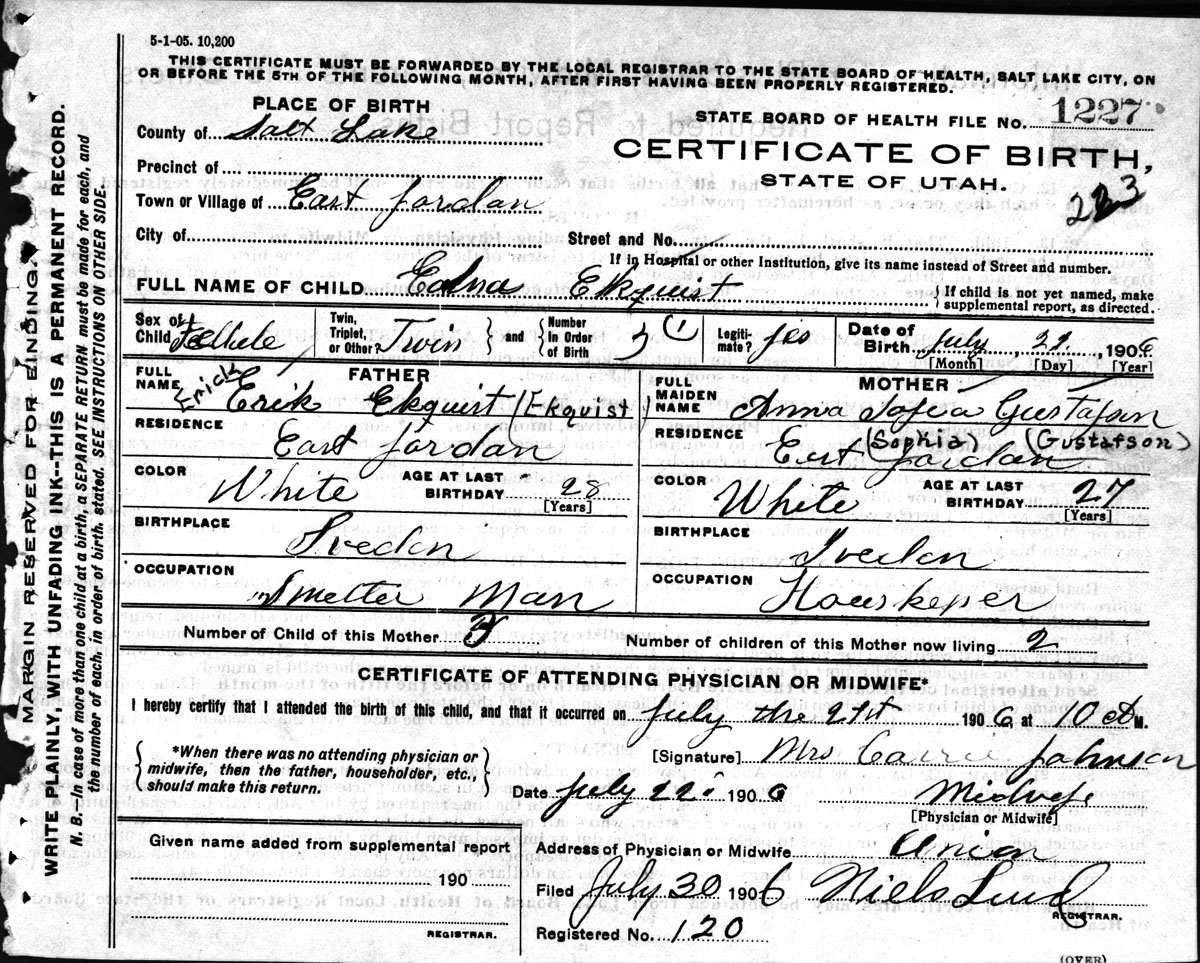 5-1-05. 10,200
THIS CERTIFICATE MUST BE FORWARDED BY THE LOCAL REGISTRAR TO THE STATE BOARD OF HEALTH, SALT LAKE CITY, ON
OR BEFORE THE 5TH OF THE FOLLOWING MONTH, AFTER FIRST HAVING BEEN PROPERLY REGISTERED.
MARGIN RESERVED FOR BINDING.
WRITE PLAINLY, WITH UNFADING INK--THIS IS A PERMANENT RECORD.
N. B. In case of more than one child at a birth, a SEPARATE RETURN must be made for each, and
the number of each, in order of birth, stated. SEE INSTRUCTIONS ON OTHER SIDE.
PLACE OF BIRTH
County of Salt Lake
Precinct of
Town or Village of East Jordan
City of
STATE BOARD OF HEALTH FILE No. 1227
CERTIFICATE OF BIRTH,
STATE OF UTAH.
223
Street and No.
If in Hospital or other Institution, give its name instead of Street and number.
FULL NAME OF CHILD Edna Ekquist
If child is not yet named, make
supplemental report, as directed.
Sex of Child
Twin, Triplet, or Other? Twin and Number In Order of Birth 2 (1)
Legitimate? jes
Date of Birth July 21, 1906
[Month] [Day] [Year]
FATHER
FULL NAME Erick Erik Ekquist (Ekquist
RESIDENCE East Jordan
COLOR White AGE AT LAST BIRTHDAY 28
[Years]
BIRTHPLACE Sveden
OCCUPATION Smelter Man
MOTHER
FULL MAIDEN NAME Anna Sofia Gustafson
(Sophia) (Gustafson)
RESIDENCE East Jordan
COLOR White AGE AT LAST BIRTHDAY 27
[Years]
BIRTHPLACE Sveden
OCCUPATION Houskeper
Number of Child of this Mother 3 Number of children of this Mother now living 2
CERTIFICATE OF ATTENDING PHYSICIAN OR MIDWIFE*
I hereby certify that I attended the birth of this child, and that it occurred on July the 21st 1906 at 10 A M.
*When there was no attending physician or
midwife, then the father, householder, etc.,
should make this return.
[Signature] Mrs Carrie Johnson
Date July 22 1906 Midvife
[Physician or Midwife]
Given name added from supplemental report
190
REGISTRAR.
Address of Physician or Midwife Union
Filed July 30 1906 Niels Lind
REGISTRAR.
Registered No. 120
(OVER)